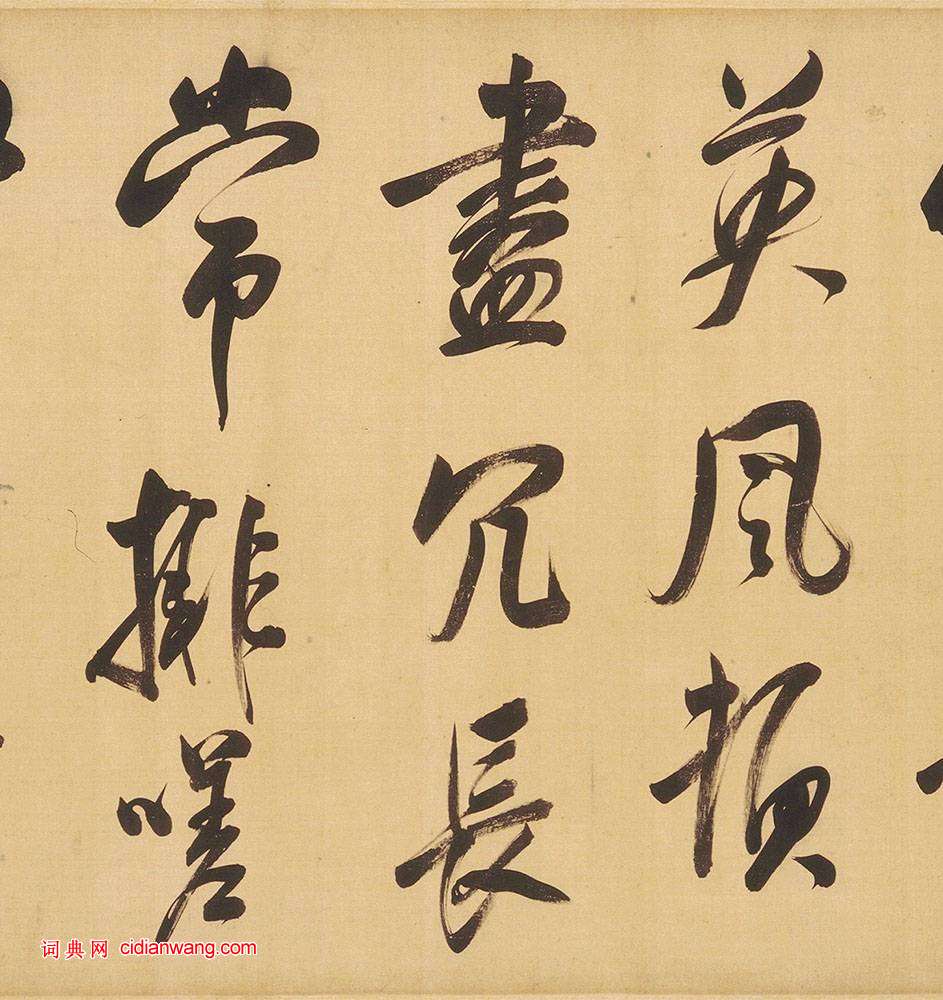 英风損
盡冗長
常排嗟
词典网 cidianwang.com